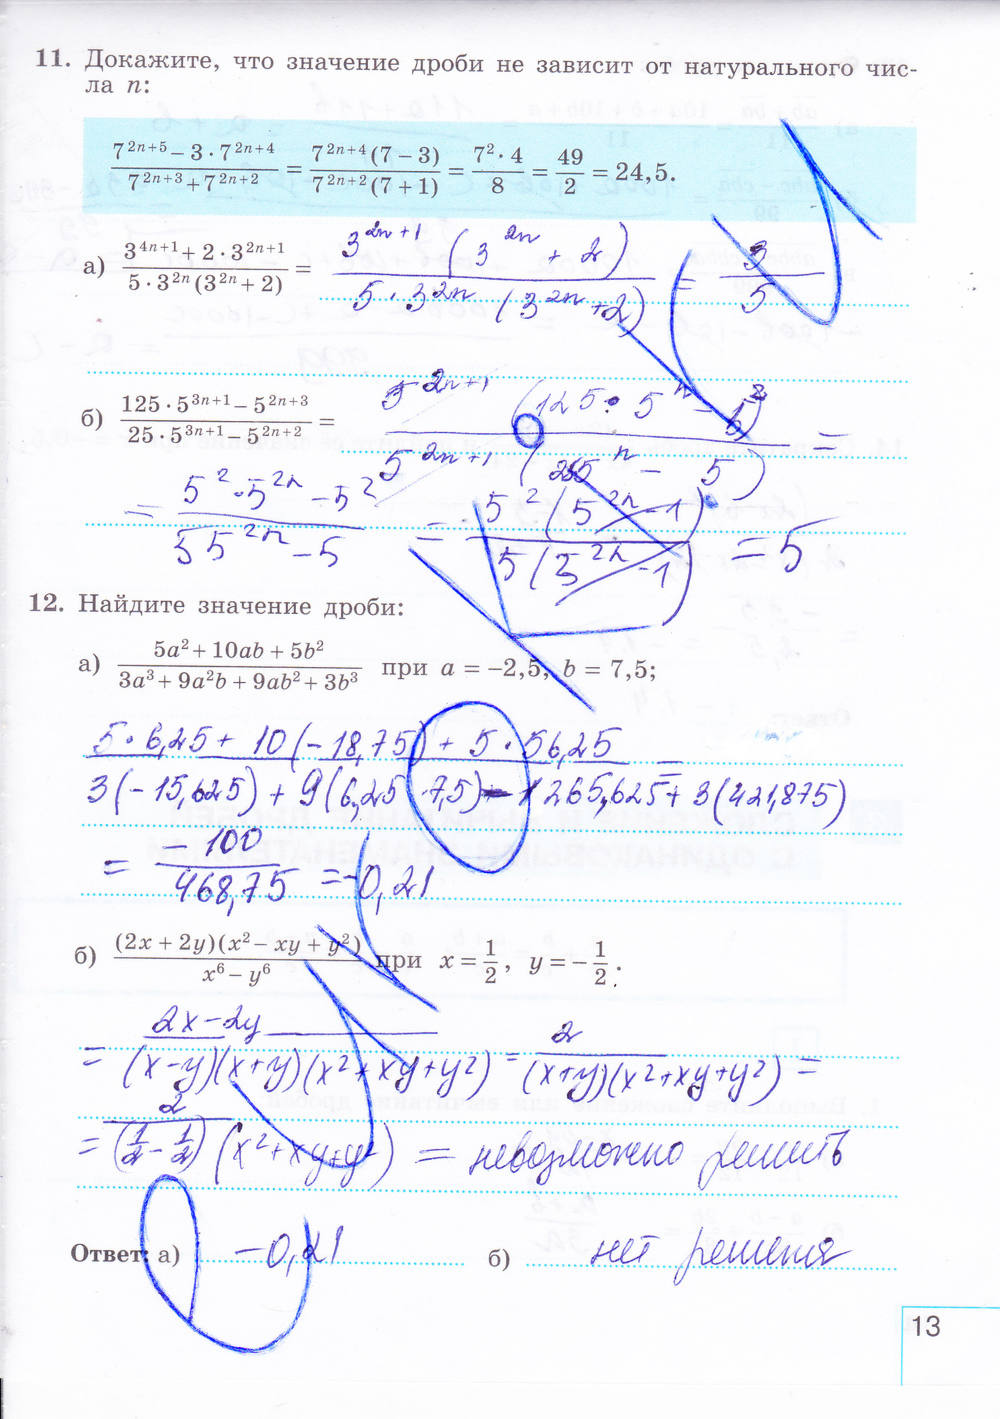 11. Докажите, что значение дроби не зависит от натурального чис-
ла n:
(7^{2n+5} − 3 · 7^{2n+4}) / (7^{2n+3} + 7^{2n+2}) = (7^{2n+4}(7 − 3)) / (7^{2n+2}(7 + 1)) = (7² · 4) / 8 = 49/2 = 24,5.
а) (3^{4n+1} + 2 · 3^{2n+1}) / (5 · 3^{2n}(3^{2n} + 2)) = (3^{2n+1} (3^{2n} + 2)) / (5 · 3^{2n} (3^{2n} + 2)) = 3/5
б) (125 · 5^{3n+1} − 5^{2n+3}) / (25 · 5^{3n+1} − 5^{2n+2}) = (5^{2n+1} (125 · 5^{n} − 5²)) / (5^{2n+1} (25^{n} − 5)) =
= (5² · 5^{2n} − 5²) / (5 5^{2n} − 5) = (5² (5^{2n} − 1)) / (5 (5^{2n} − 1)) = 5
12. Найдите значение дроби:
а) (5a² + 10ab + 5b²) / (3a³ + 9a²b + 9ab² + 3b³) при a = −2,5, b = 7,5;
(5 · 6,25 + 10 (−18,75) + 5 · 56,25) / (3 (−15,625) + 9 (6,25 · 7,5) − 1265,625 + 3 (421,875)) =
= −100 / 468,75 = −0,21
б) ((2x + 2y)(x² − xy + y²)) / (x⁶ − y⁶) при x = 1/2, y = −1/2.
= (2x − 2y) / ((x−y)(x+y)(x²+xy+y²)) = 2 / ((x+y)(x²+xy+y²)) =
= 2 / ((1/2 − 1/2) (x²+xy+y²)) = невозможно решить
Ответ: а) −0,21 б) нет решения
13